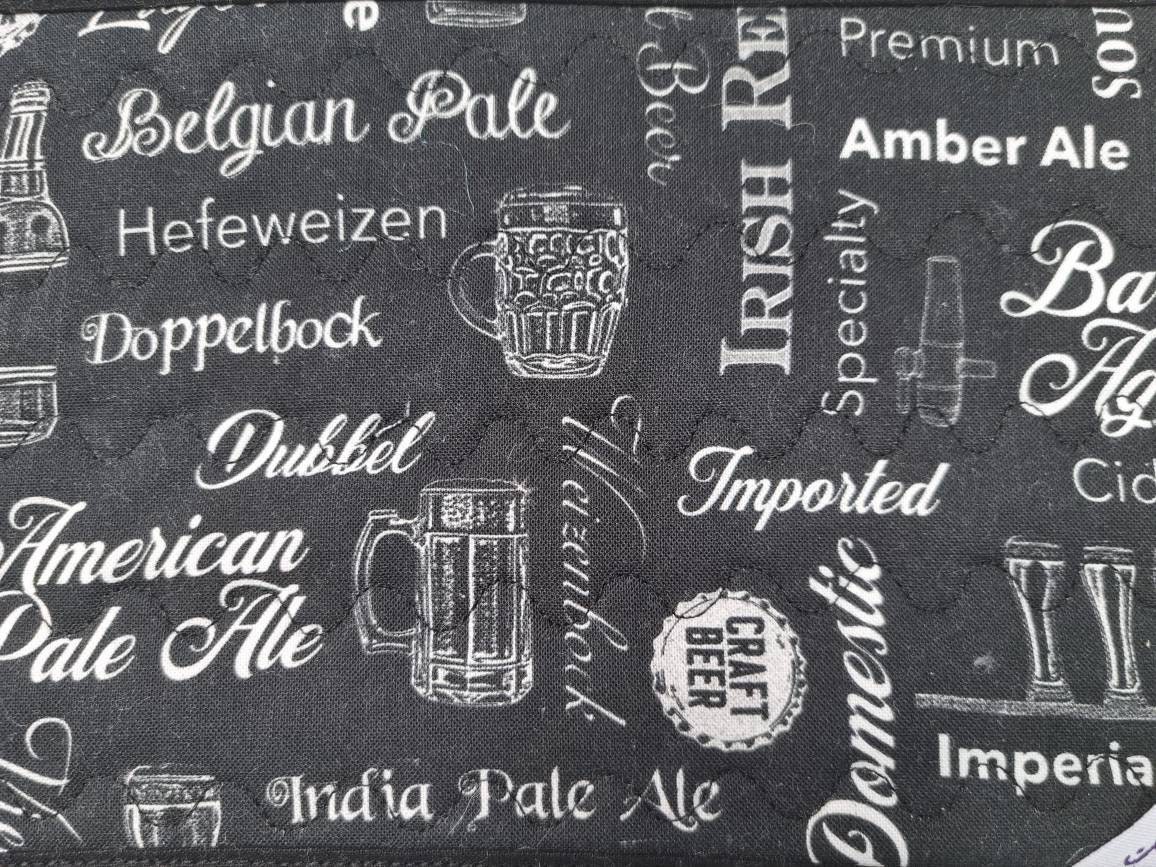 Lager
Premium
Belgian Pale
Beer
IRISH RE
Amber Ale
Hefeweizen
Specialty
Doppelbock
Ba
Ag
Dubbel
Weizenbock
Imported
Cid
American
Pale Ale
CRAFT
BEER
Domestic
Imperia
India Pale Ale